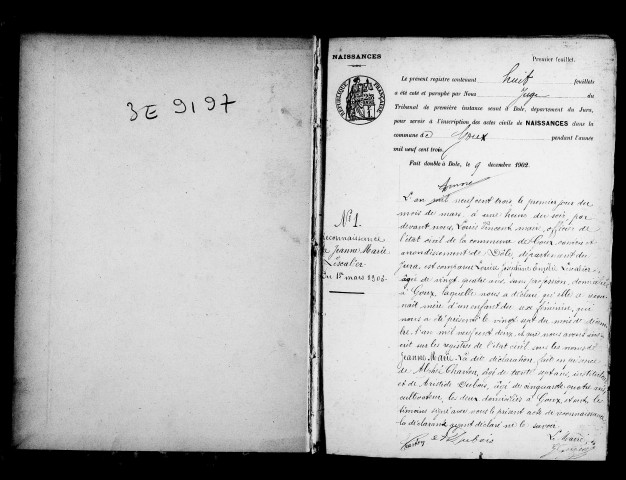 3E 9197
NAISSANCES
Premier feuillet.
Le présent registre contenant huit feuillets
a été coté et paraphé par Nous Juge du
Tribunal de première instance séant à Dole, département du Jura,
pour servir à l'inscription des actes civils de NAISSANCES dans la
commune de Goux pendant l'année
mil neuf cent trois.
Fait double à Dole, le 9 décembre 1902.
RÉPUBLIQUE FRANÇAISE
N° 1.
Reconnaissance
de Jeanne Marie
Lescalier
Du 1er mars 1903.
L'an mil neuf cent trois, le premier jour du
mois de mars, à une heure du soir, par
devant nous, Louis Vincent maire, officier de
l'état civil de la commune de Goux, canton et
arrondissement de Dôle, département du
Jura, est comparue Louise
âgée de vingt quatre ans, sans profession, domiciliée
à Goux, laquelle nous a déclaré qu'elle se recon-
naît mère d'un enfant du sexe féminin, qui
nous a été présenté le vingt sept du mois de décem-
bre, l'an mil neuf cent deux, et que nous avons ins-
crit sur les registres de l'état civil sous les noms de
Jeanne Marie. La dite déclaration, fait en présence
de Charton, âgé de trente sept ans, instituteur
et de Aristide Dubois, âgé de cinquante quatre ans,
cultivateur, les deux domiciliés à Goux, et ont les
témoins signé avec nous le présent acte de reconnaissance
la déclarante ayant déclaré ne le savoir.
Charton Dubois Le Maire,